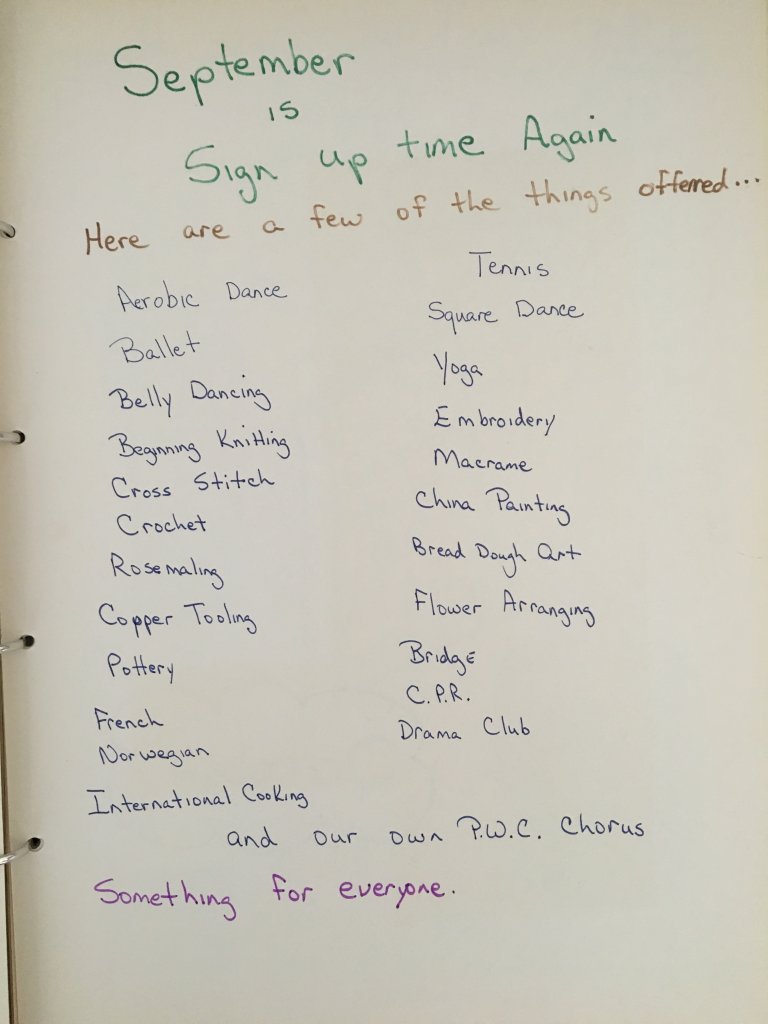 September
is
Sign up time Again
Here are a few of the things offerred...
Aerobic Dance
Ballet
Belly Dancing
Beginning Knitting
Cross Stitch
Crochet
Rosemaling
Copper Tooling
Pottery
French
Norwegian
International Cooking
Tennis
Square Dance
Yoga
Embroidery
Macrame
China Painting
Bread Dough Art
Flower Arranging
Bridge
C.P.R.
Drama Club
and our own P.W.C. Chorus
Something for everyone.